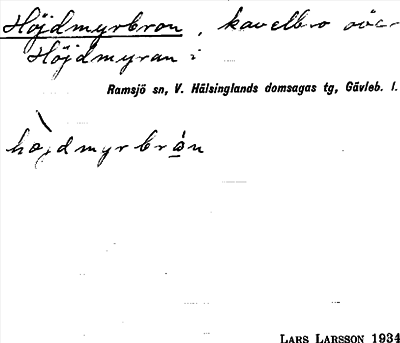 Höjdmyrbron, kavelbro över
Höjdmyran i
Ramsjö sn, V. Hälsinglands domsagas tg, Gävleb. l.
hò̹jdmyrbrω̲n
LARS LARSSON 1934